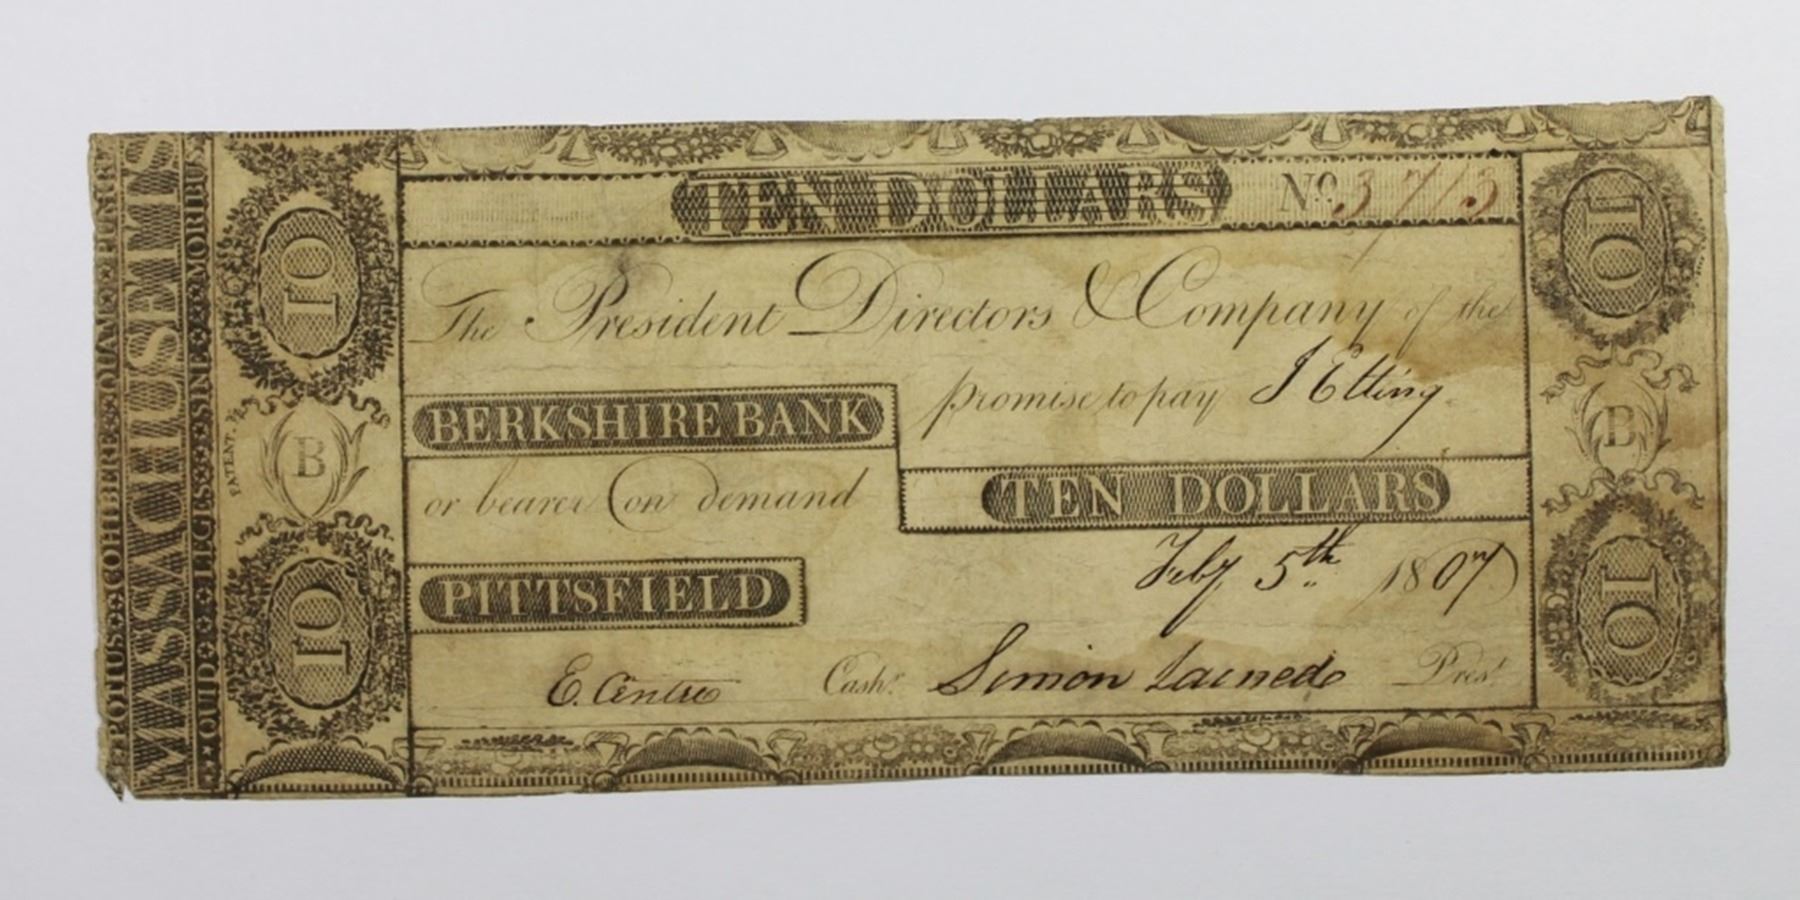 TEN DOLLARS No. 3713
The President Directors & Company of the
BERKSHIRE BANK promise to pay J Elting
or bearer on demand TEN DOLLARS
PITTSFIELD Feby 5th 1807
E. Cashr. Simon Larned Prest.
MASSACHUSETTS
POTIUS COHIBERE QUAM PUNIRE
QUID LEGES SINE MORIBUS
PATENT.
10
B
10
10
B
10